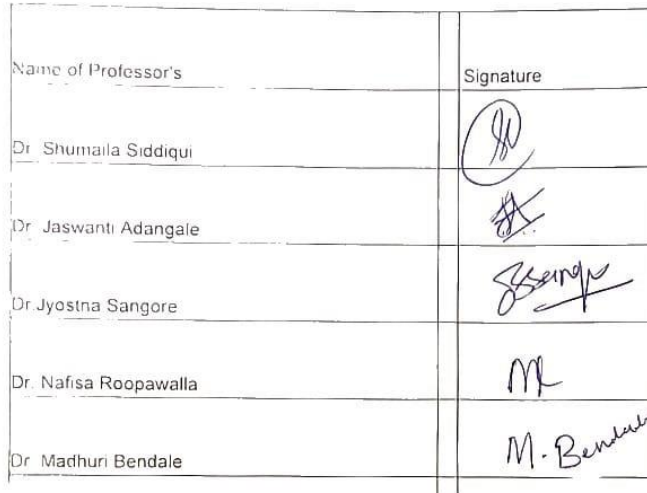 Name of Professor's Signature
Dr Shumaila Siddiqui
Dr Jaswanti Adangale
Dr Jyostna Sangore
Dr. Nafisa Roopawalla
Dr Madhuri Bendale M. Bendale